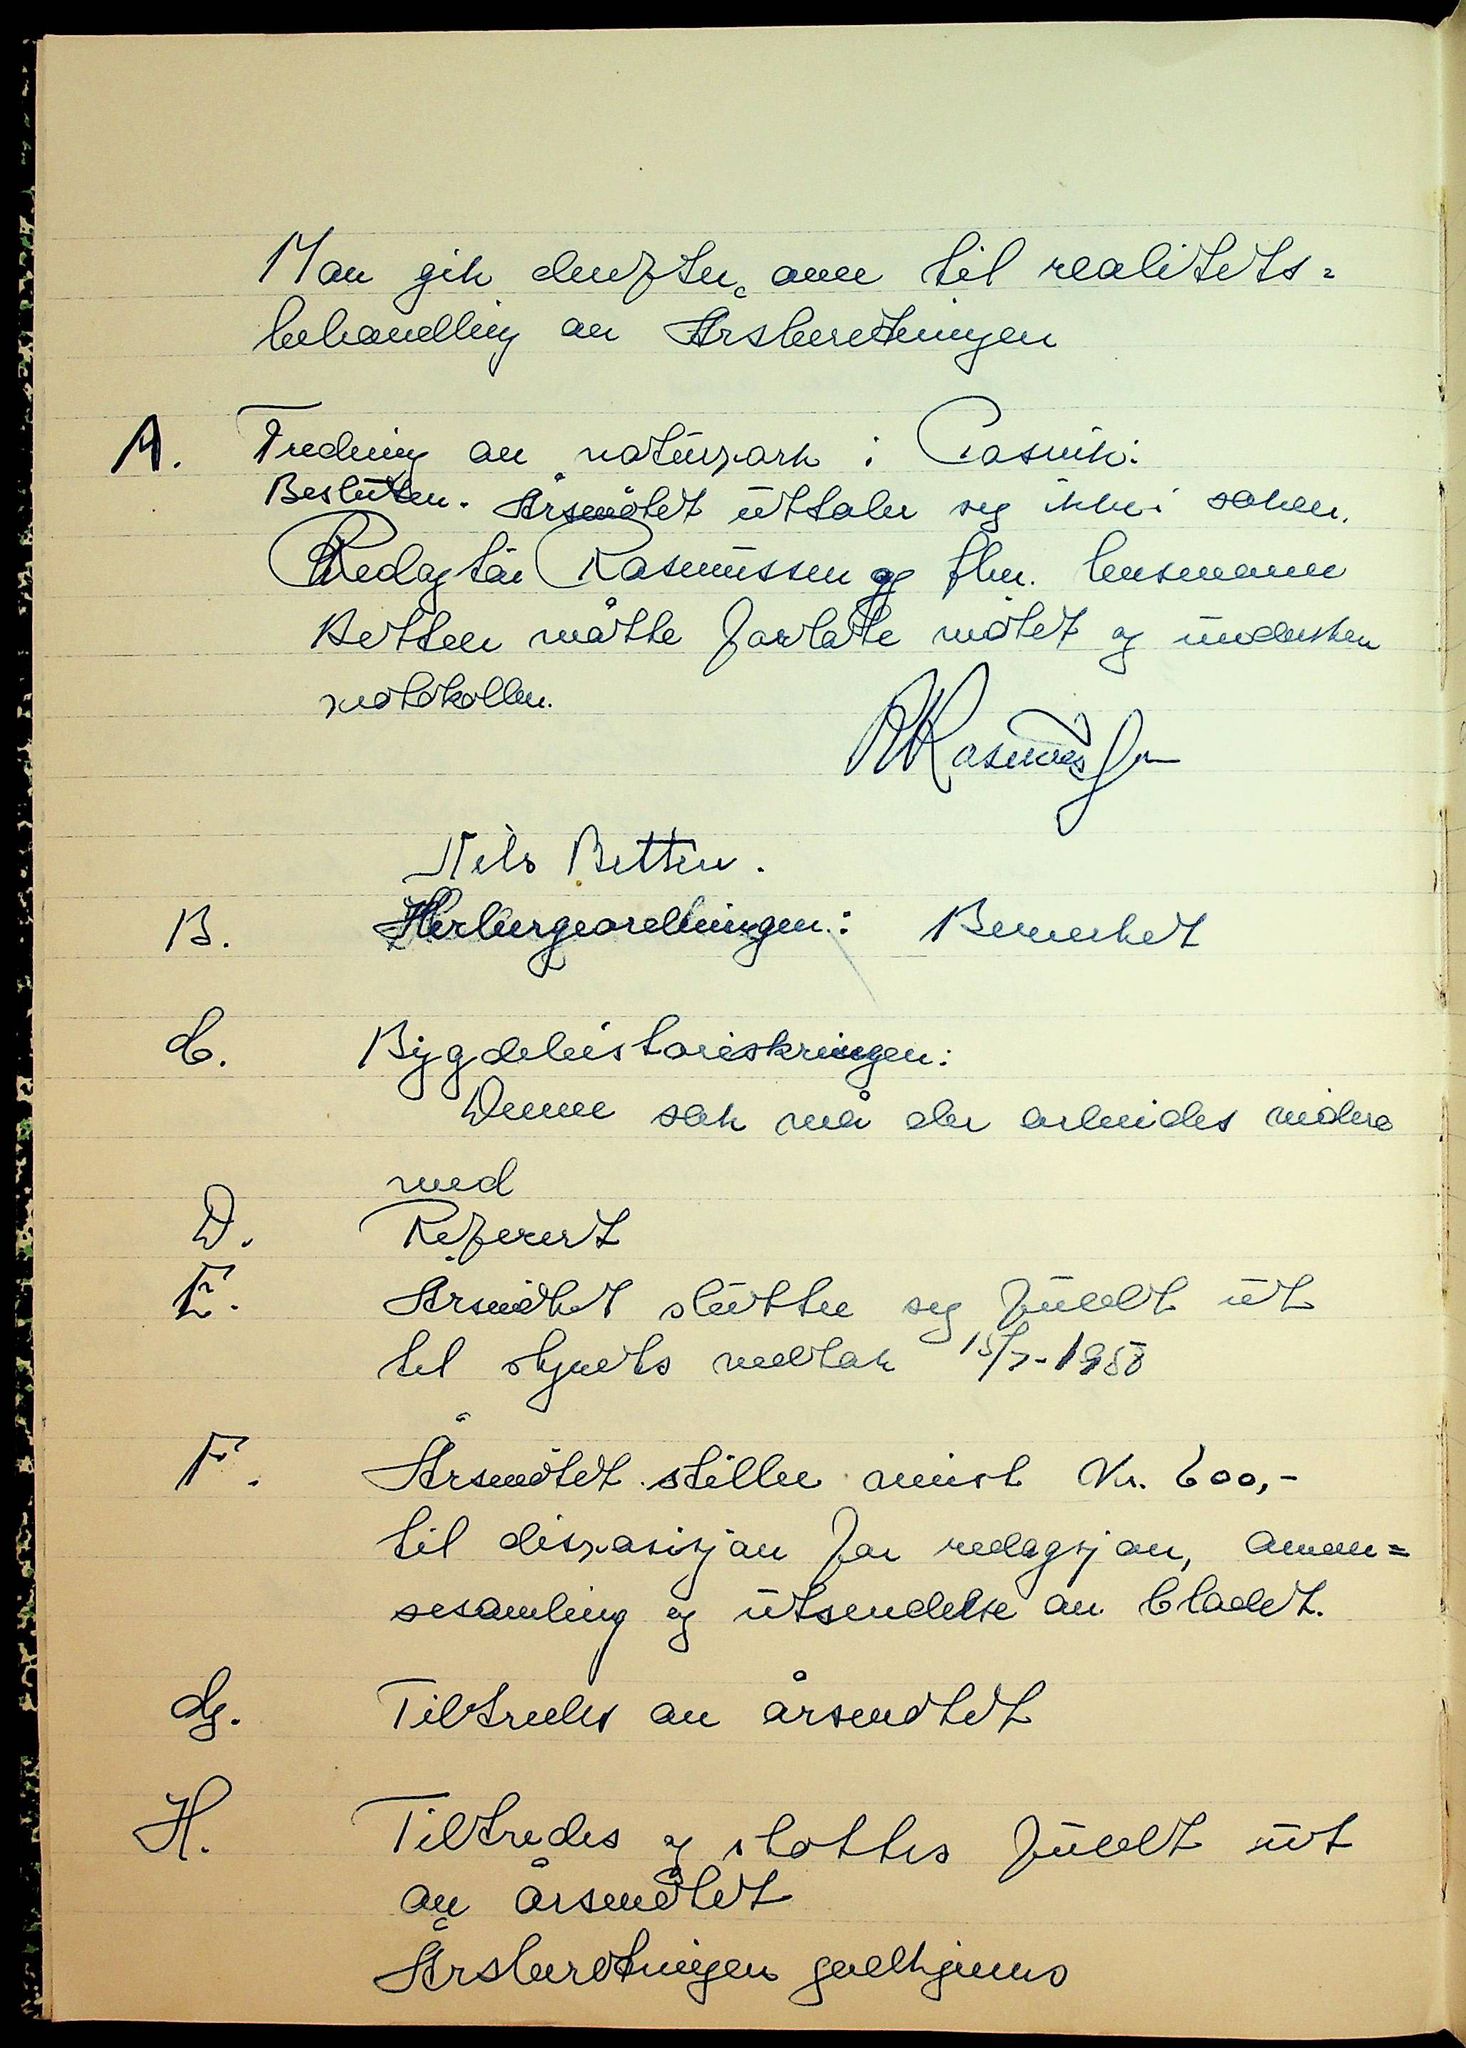 Man gik derefter over til realitets=
behandling av Årsberetningen
A. Fredning av naturpark i Pasvik:
Beslutten. Årsmötet uttaler seg ikke i saken.
Redaktör Rasmussen og fhv. lensmann
Betten måtte forlate mötet og underskrev
protokollen.
R Rasmussen
Nils Betten.
B. Herbergeordningen: Bemerket
C. Bygdehistorieskringen:
Denne sak må der arbeides videre
med
D. Referert
E. Årsmötet slutter seg fullt ut
til styrets vedtak 15/7-1958
F. Årsmötet stiller minst Kr. 600,-
til disposisjon for redagsjon, annon=
sesamling og utsendelse av bladet.
G. Tiltredes av årsmötet
H. Tiltredes og stöttes fullt ut
av årsmötet
Årsberetningen godkjennes